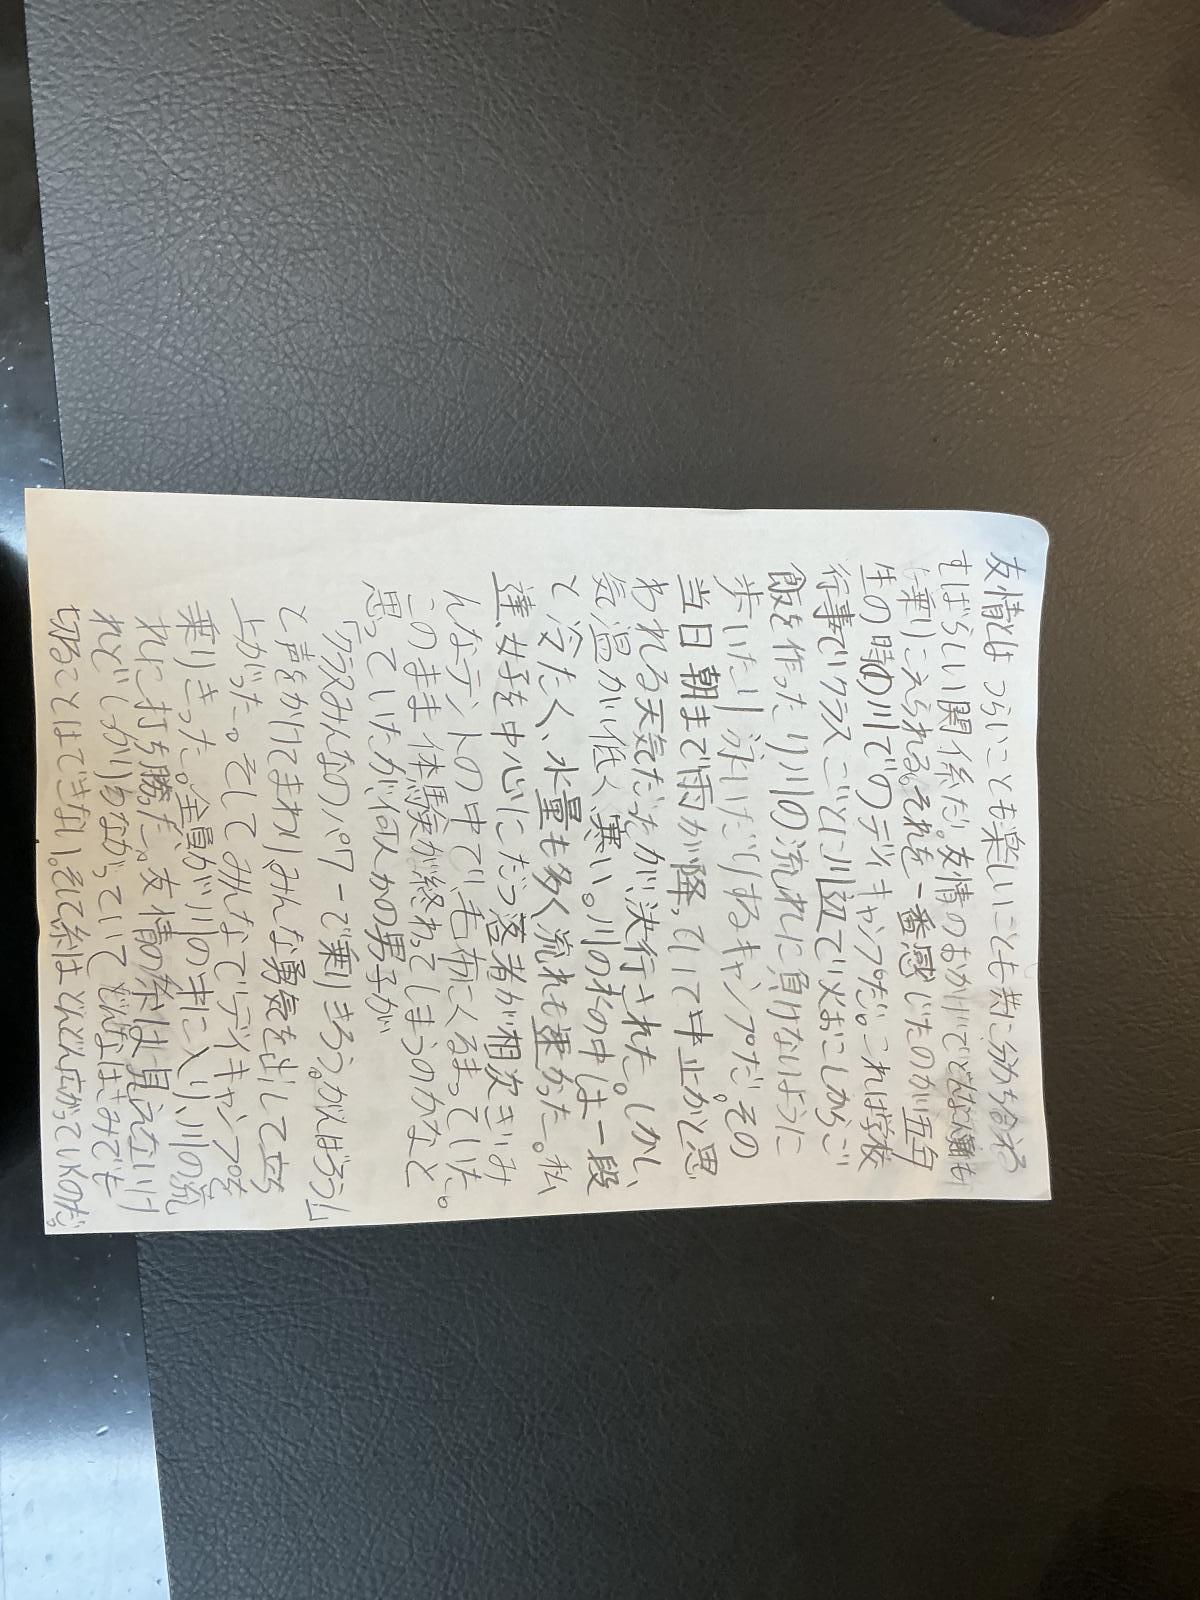 友情とはつらいことも楽しいことも共に分かち合える
すばらしい関係だ。友情のおかげでどんな壁も
乗りこえられる。それを一番感じたのが五年
生の時の川でのデイキャンプだ。これは学校
行事でクラスごとに川辺で火おこしからご
飯を作ったり川の流れに負けないように
歩いたり泳いだりするキャンプだ。その
当日朝まで雨が降っていて中止かと思
われる天気だったが決行された。しかし、
気温が低く、寒い。川の水の中は一段
て冷たく、水量も多く流れも速かった。私
達、女子を中心にだつ落者が相次ぎみ
んなテントの中で、毛布にくるまっていた。
このまま体験が終わってしまうのかなと
思っていたが何人かの男子が
「クラスみんなのパワーで乗りきろう。がんばろう!」
と声をかけてまわりみんな勇気を出して立ち
上がった。そしてみんなでデイキャンプを
乗りきった。全員が川の中に入り、川の流
れに打ち勝った。友情の糸は見えないけ
れどしっかりつながっていてどんなはさみでも
切ることはできない。そして糸はどんどん広がっていくのだ。